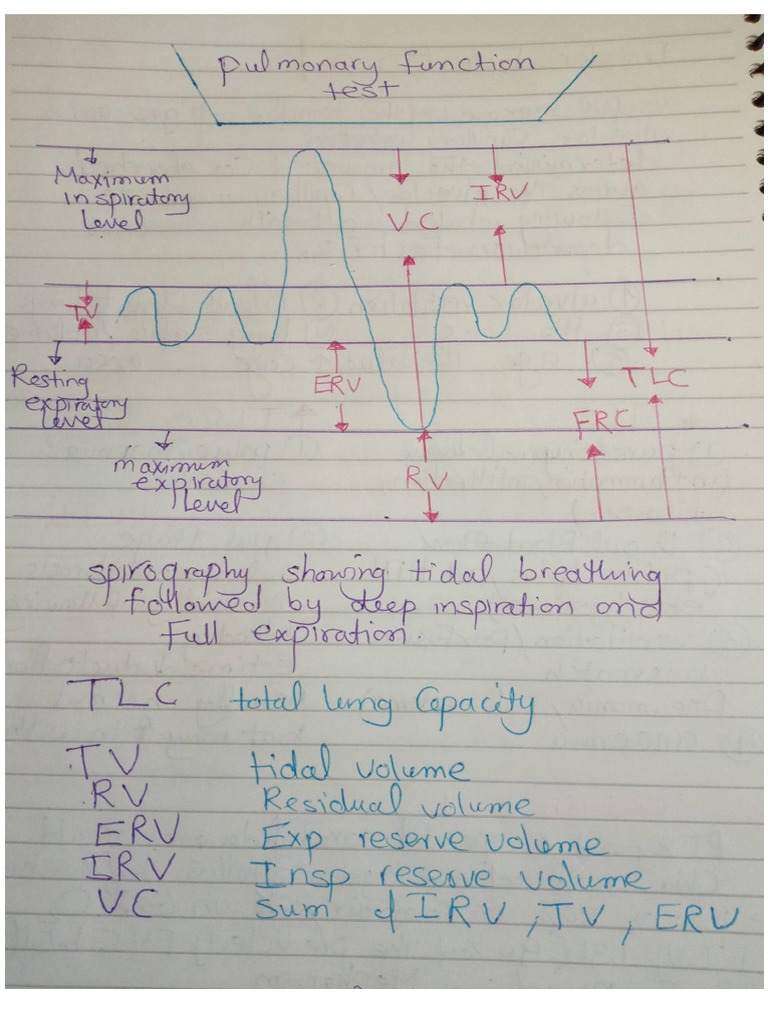 pulmonary function
test
Maximum
inspiratory
Level
VC
IRV
TV
Resting
expiratory
Level
ERV
TLC
FRC
maximum
expiratory
Level
RV
spirography showing tidal breathing
followed by deep inspiration and
Full expiration.
TLC total lung Capacity
TV tidal volume
RV Residual volume
ERV Exp reserve volume
IRV Insp reserve volume
VC sum of IRV, TV, ERV